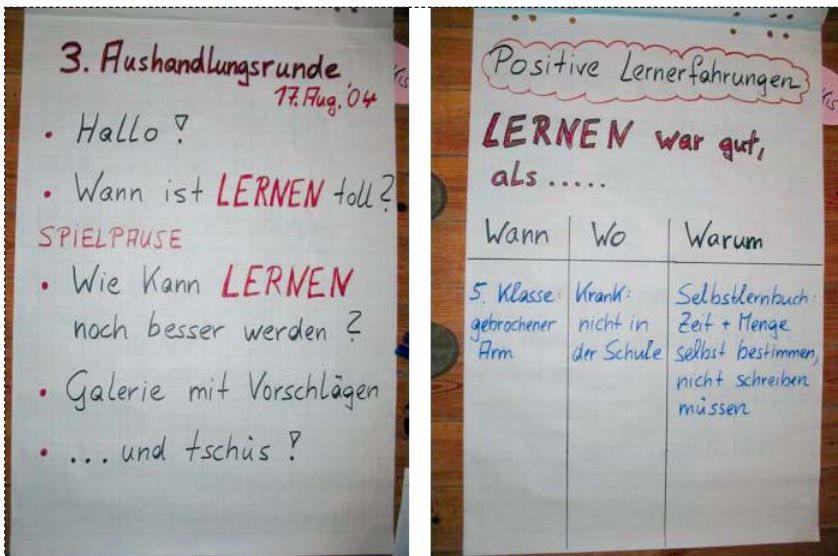 3. Aushandlungsrunde
17. Aug. '04
• Hallo !
• Wann ist LERNEN toll ?
SPIELPAUSE
• Wie kann LERNEN
noch besser werden ?
• Galerie mit Vorschlägen
• ... und tschüs !
Positive Lernerfahrungen
LERNEN war gut,
als .....
Wann Wo Warum
5. Klasse:
gebrochener
Arm
Krank:
nicht in
der Schule
Selbstlernbuch:
Zeit + Menge
selbst bestimmen,
nicht schreiben
müssen